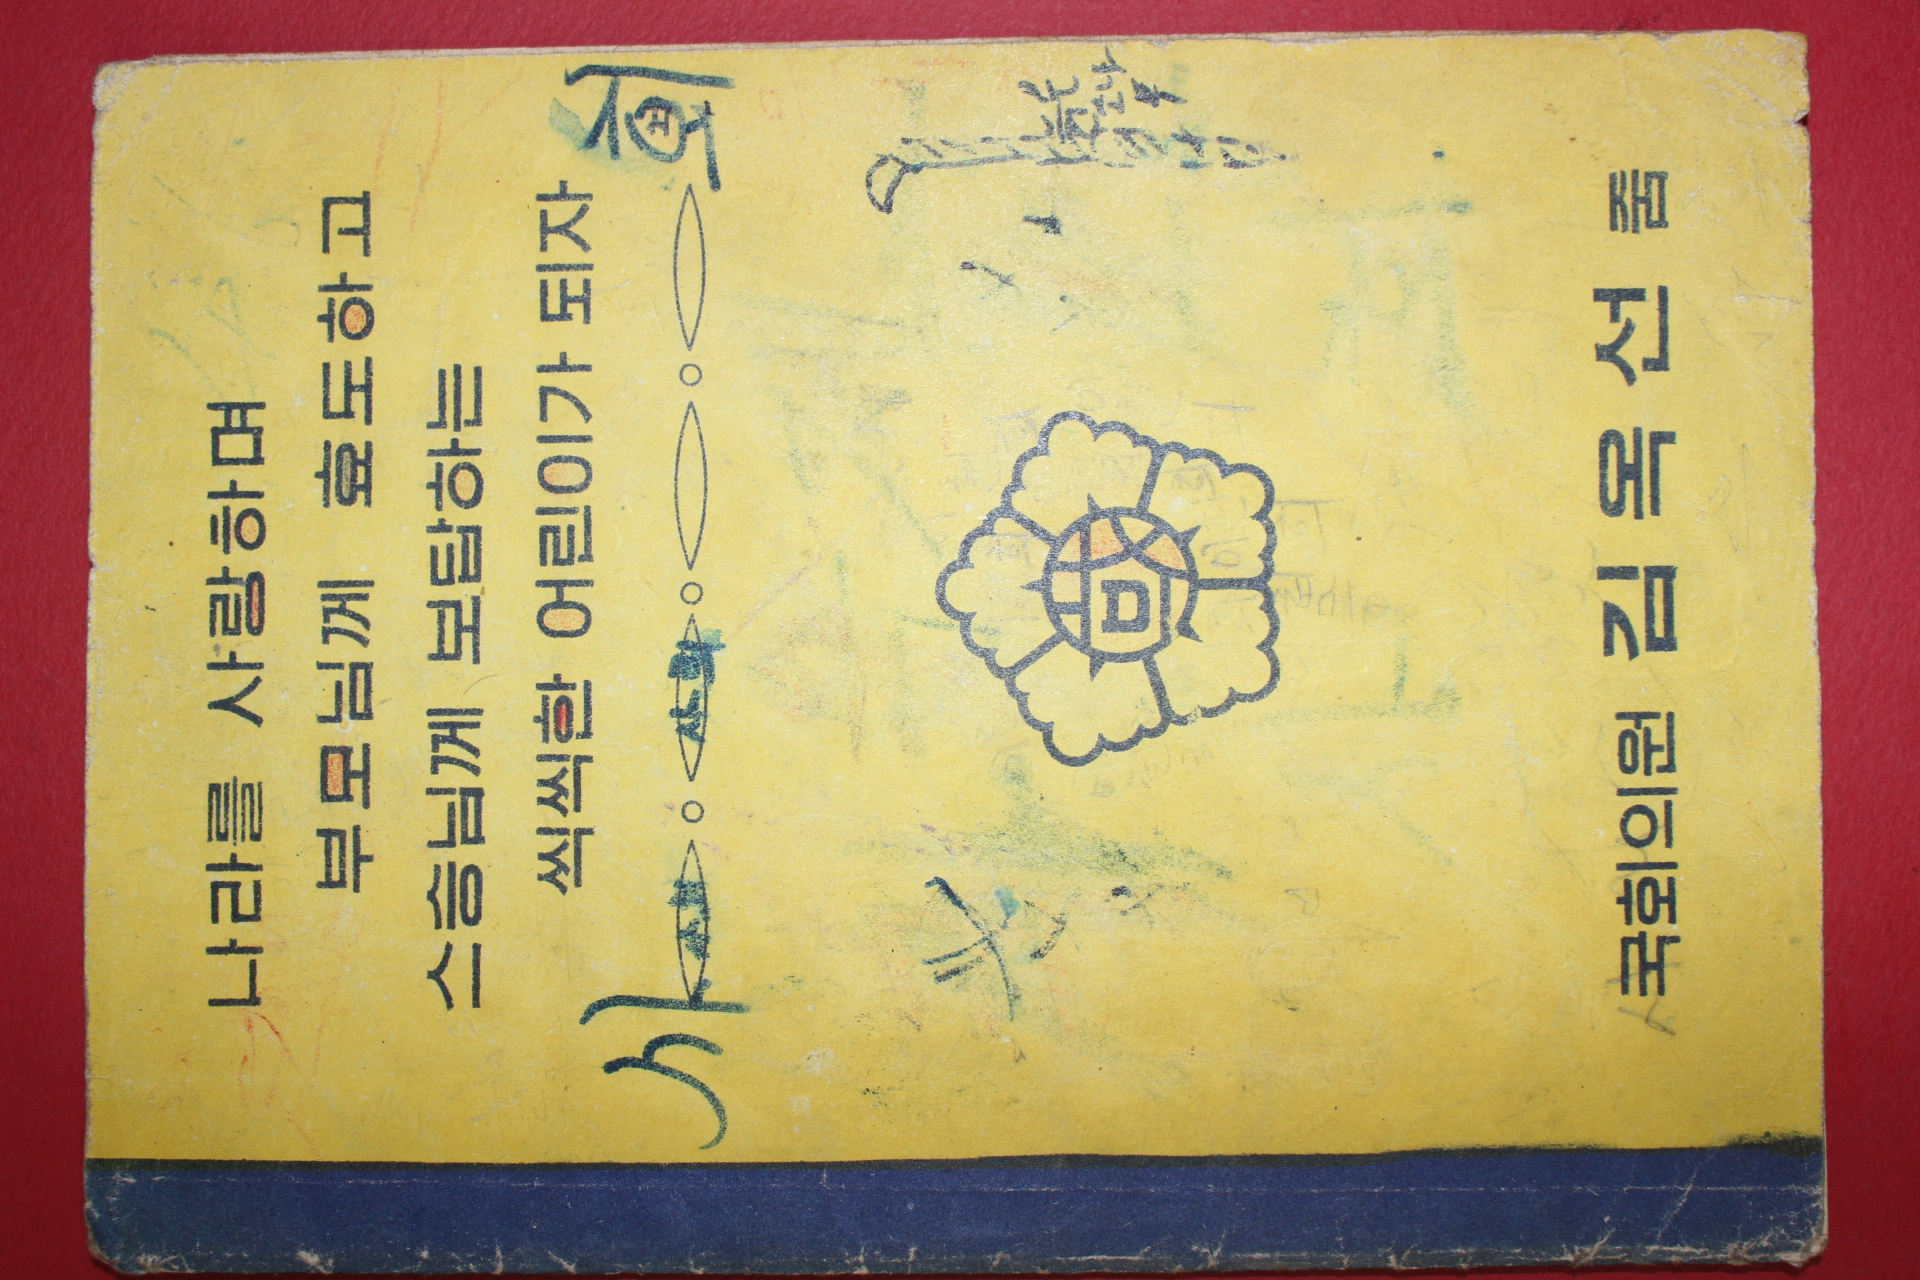 나라를 사랑하며
부모님께 효도하고
스승님께 보답하는
씩씩한 어린이가 되자
사 회
사회
늙은
소나
무
국회의원 김옥선 줌